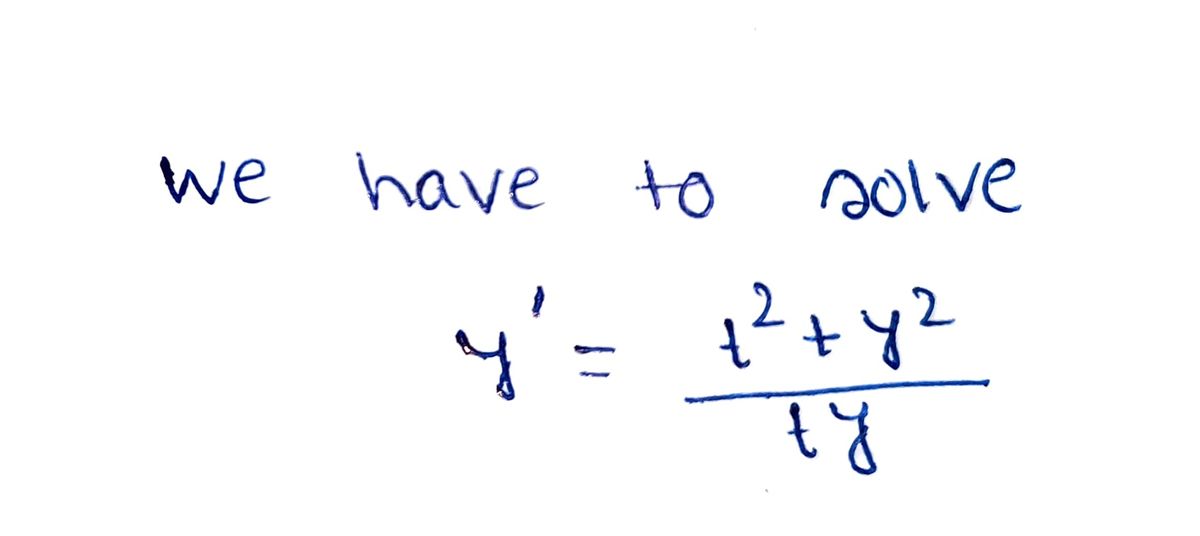 we have to solve
y' = \frac{t^2 + y^2}{ty}